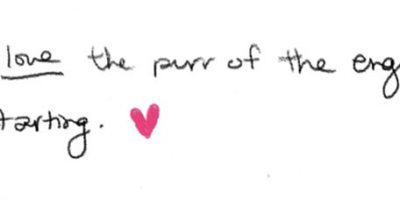 love the purr of the eng
tarting.